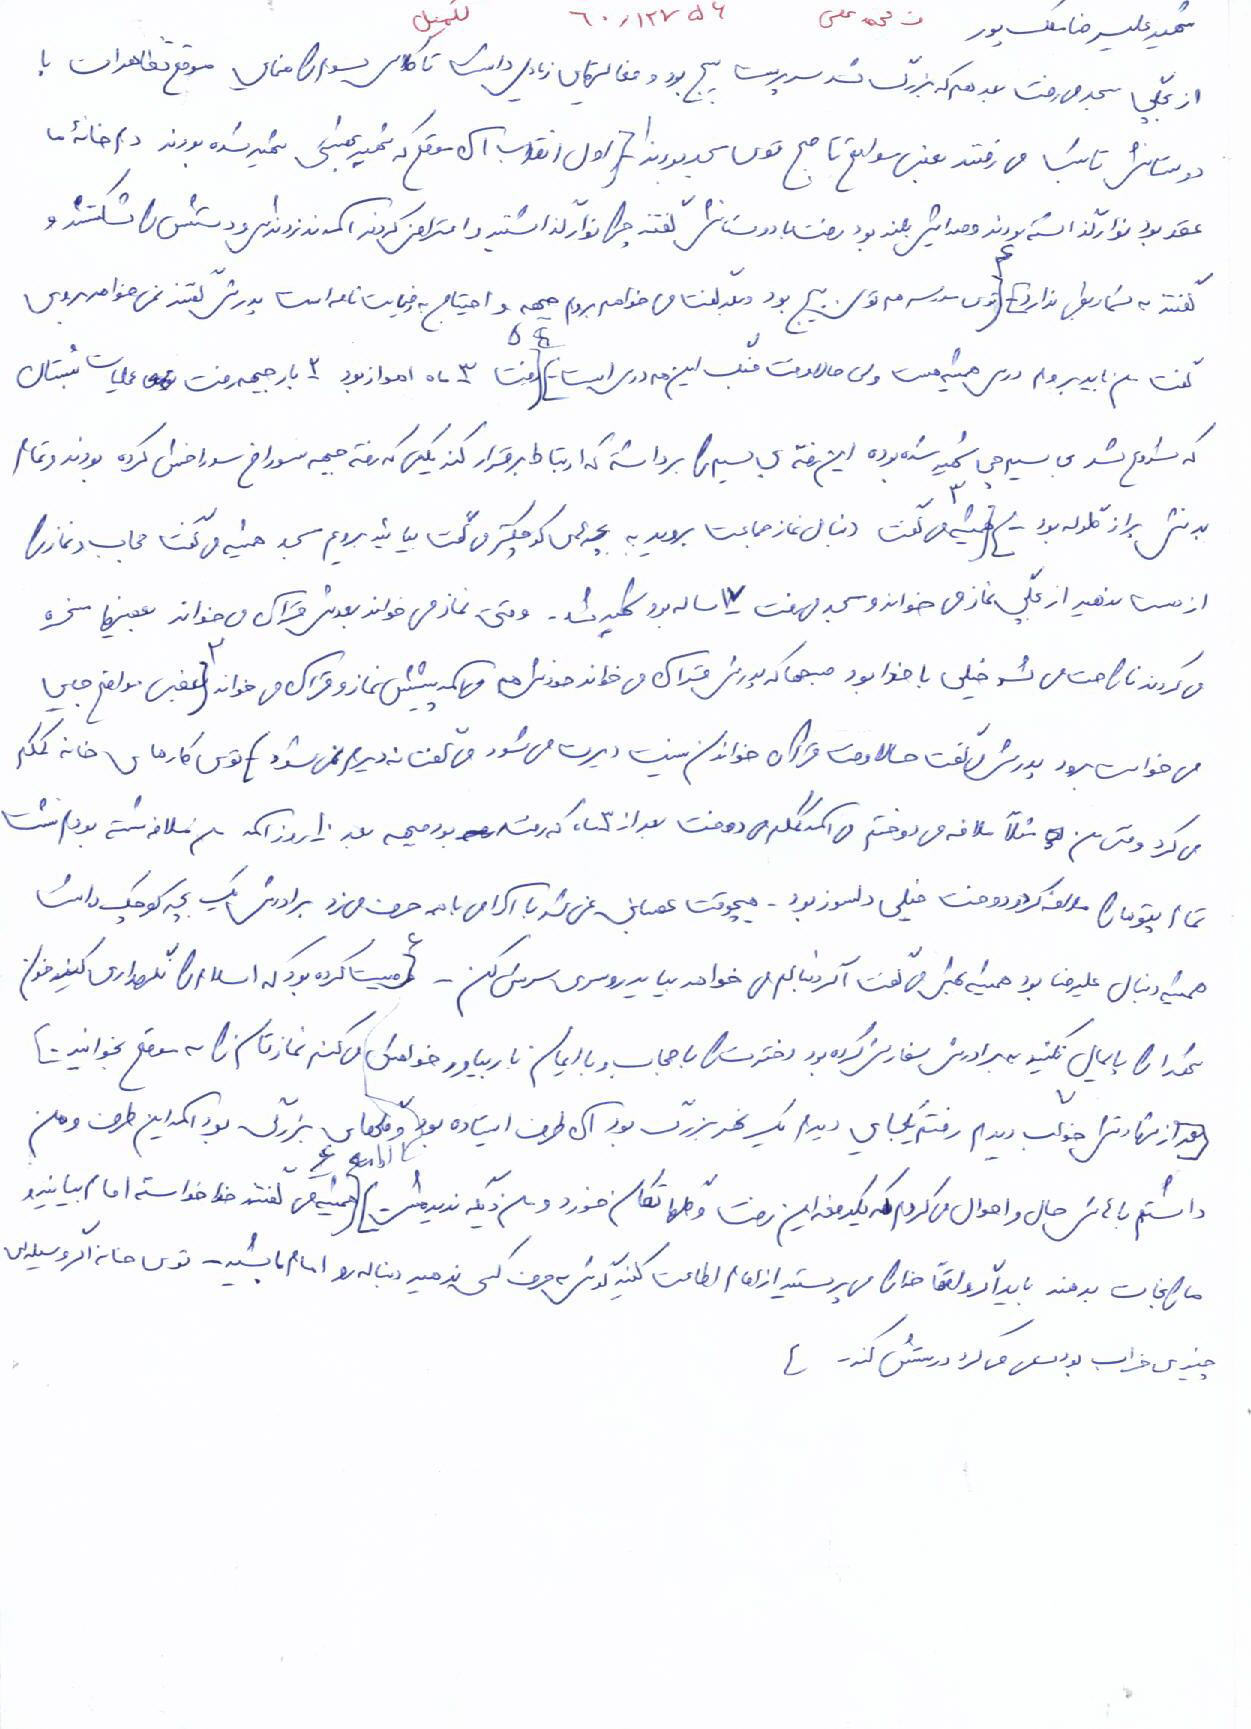 شهید علیرضا ملک پور
از بچگی مسجد می رفت بعد هم که بزرگ شد سرپرست بسیج بود و فعالیتهای زیادی داشت تا کلاس سوم راهنمایی موقع تظاهرات با
دوستانش تا شب می رفتند بعضی مواقع تا صبح توی مسجد بودند اول انقلاب آن موقع که شهید شده بودند دم خانهٔ ما
عقد بود نوار گذاشته بودند و صدایش بلند بود رفت با دوستانش گفتند چرا نوار گذاشتید و اعتراض کردند آمدند زدندش و دستش را شکستند و
گفتند به شما ربطی ندارد توی مدرسه هم توی بسیج بود بعد گفت می خواهم بروم جبهه و احتیاج به رضایت نامه است پدرش گفتند نمی خواهد بروی
گفت من باید بروم درس همیشه هست ولی حالا وقت جنگ این هم درس است رفت ۳ ماه اهواز بود ۲ بار جبهه رفت عملیات بستان
که شروع شد بی سیم چی شهید شده بوده این رفته بی سیم را برداشته که ارتباط برقرار کند یکی که رفته جبهه سوراخ سوراخش کرده بودند و تمام
بدنش پر از گلوله بود - ۳ همیشه می گفت دنبال نماز جماعت بروید به بچه های کوچکتر می گفت بیائید برویم مسجد همیشه می گفت حجاب و نماز را
از دست ندهید از بچگی نماز می خواند و مسجد می رفت ۱۷ ساله بود شهید شد - وقتی نماز می خواند بعدش قرآن می خواند بعضیها مسخره
می کردند ناراحت می شد خیلی با خدا بود صبحها که پدرش قرآن می خواند خودش هم می آمد پیشش نماز و قرآن می خواند ۳ بعضی مواقع جایی
می خواست برود پدرش می گفت حالا وقت قرآن خواندن نیست دیرت می شود می گفت نه دیرم نمی شود توی کارهای خانه کمکم
می کرد وقتی من مثلاً ملافه می دوختم می آمد کمکم می دوخت بعد از ۳ ماه که رفته بود جبهه بعد ۱۰ روز آمد من ملافه شسته بودم نشست
تمام پتوها را ملافه کرد و دوخت خیلی دلسوز بود - هیچوقت عصبانی نمی شد با آرامی با همه حرف می زد برادرش یک بچه کوچک داشت
همیشه دنبال علیرضا بود همیشه بهش می گفت اگر دنبالم می خواهد بیاید روسری سرش کن - ۶ وصیت کرده بود که اسلام را نگهداری کنید خون
شهدا را پایمال نکنید به برادرش سفارش کرده بود دخترت را با حجاب و با ایمان بار بیاور خواهش می کنم نمازتان را به موقع بخوانید -
۷ بعد از شهادتش خواب دیدم رفتم یکجایی دیدم یک نهر بزرگ بود آن طرف ایستاده بود و گلهای بزرگی بود آمد این طرف و من
داشتم باهاش حال و احوال می کردم که یکدفعه این رفت و گلها تکان خورد و من دیگه ندیدمش - ادامه ۶ همیشه می گفتند خدا خواسته امام بیایند و
ما را نجات بدهند باید اگر واقعاً خدا را می پرستید از امام اطاعت کنید گوش به حرف کسی ندهید دنباله رو امام باشید - توی خانه اگر وسیله ای
چیزی خراب بود سعی می کرد درستش کند -